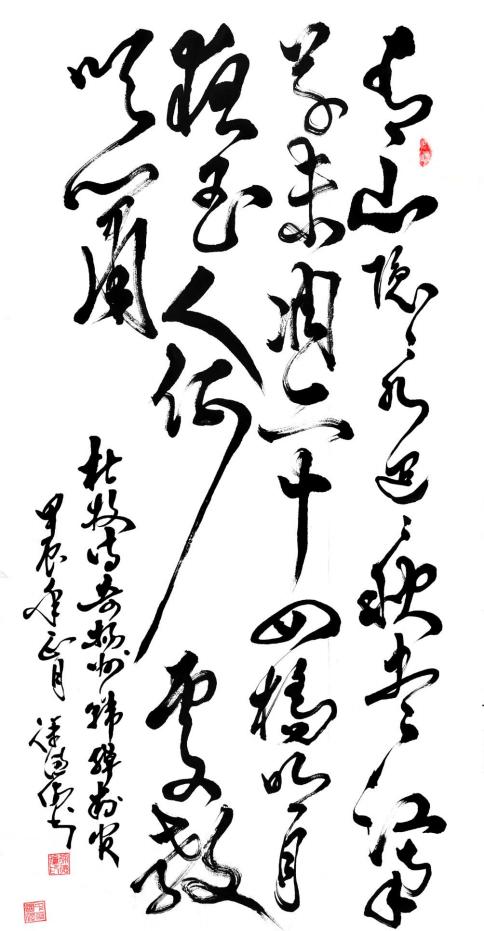 青山隐〻水迢〻秋尽江南
草未凋二十四桥明月
夜玉人何處教
吹箫
杜牧诗寄扬州韩绰判官
甲辰年正月